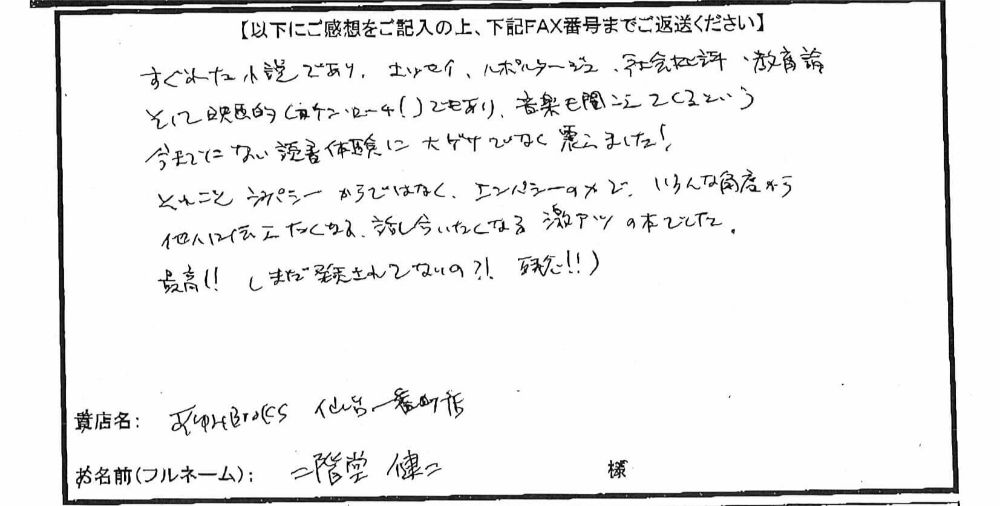 【以下にご感想をご記入の上、下記FAX番号までご返送ください】
すぐれた小説であり、エッセイ、ルポルタージュ、社会批評、教育論
そして映画的(ケン・ローチ!)でもあり、音楽も聞こえてくるという
今までにない読書体験に大ゲサでなく震えました!
それこそシンパシーからではなく、エンパシーの方で、いろんな角度から
他人に伝えたくなる、話し合いたくなる激アツの本でした。
最高!! (まだ発売されてないの?! 残念!!)
貴店名: 仙台一番町店
お名前(フルネーム): 二階堂 健二 様